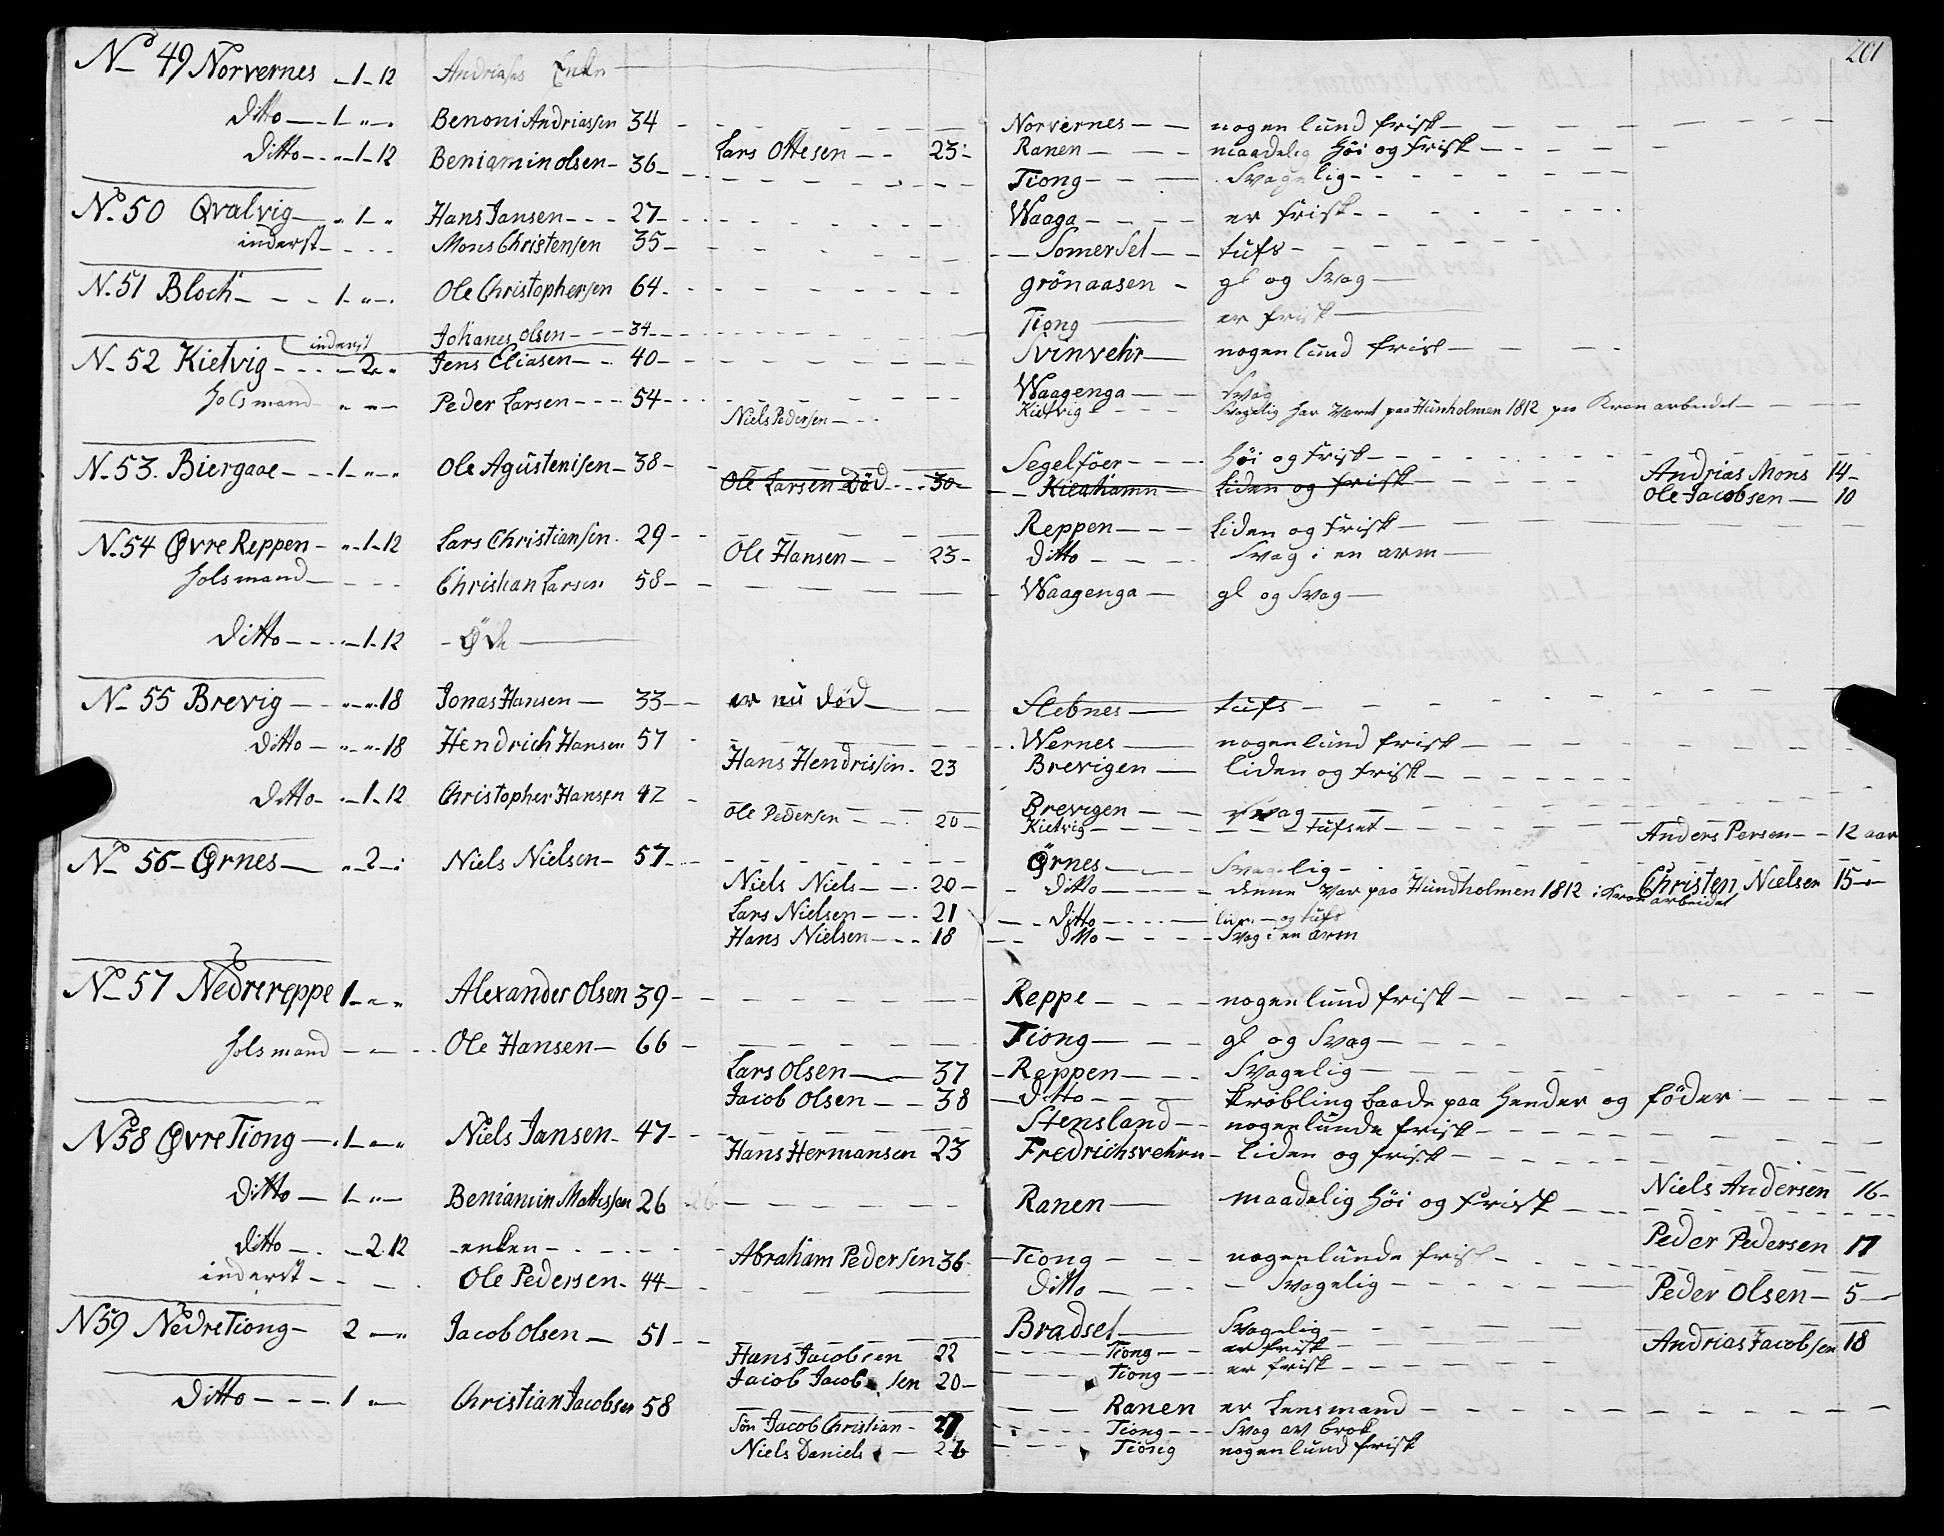 201
No 49 Norvernes - 1 - 12 Andriases Enke
Ditto - 1 - " - Benoni Andriassen 34 Norvernes nogenlund frisk
Ditto - " - 1 - 12 Beniamin olsen - 36 Lars Ottesen 23 Ranen maadelig høi og frisk
Tiong Svagelig
No 50 Qvalvig - " 1 - " Hans Jansen - 27 Waaga er frisk
inderst Mons Christensen 35 Somersel tufs
N. 51 Bloch 1 - " - Ole Christophersen 64 grönaasen gl og Svag
inderst Johanes olsen 34 Tiong er frisk
N. 52 Kietvig 2 - " Jens Eliasen 40 Svinvehr nogenlund frisk
Holsmand " - " - Peder Larsen 54 Waagenga Svag
Niels Pedersen Kietvig Svagelig har Været paa Hunholmen 1812 paa Kron arbeidet
N. 53. Biergaae 1 - " - " Ole Agustenisen 38 Segelföer høi og frisk
Ole Larsen Död 30 liden og frisk Andrias Mons 14
Ole Jacobsen 10
N. 54 Øvre Reppen - " - 1 - 12 Lars Christiansen 29 Reppen liden og frisk
Ole Hansen 23 Ditto Svag i en arm
Holsmand Christian Larsen 58 Waagenga gl og Svag
Ditto " - 1 - 12 Øde
No 55 Brevig " - " - 18 Jonas Hansen 33 er nu död Slebnes tufs
Ditto " - " - 18 Hendrich Hansen 57 Wernes nogenlund frisk
Hans Hendrissen 23 Brevigen liden og frisk
Ditto " - 1 - 12 Christopher Hansen 42 Brevigen Svag
Ole Pedersen 20 Kietvig tufset Anders Persen 12 aar
No 56 - Ørnes " 2 - " Niels Nielsen 57 Örnes Svagelig
Niels Niels 20 Ditto denne Var paa Hundholmen 1812 i Kron arbeidet Christen Nielsen 15
Lars Nielsen 21 Ditto og tufs
Hans Nielsen 18 Ditto Svag i en arm
No 57 Nedrereppe 1 - " - " Alexander Olsen 39 Reppe nogenlund frisk
Holsmand Ole Hansen 66 Tiong gl og Svag
Lars Olsen 37 Reppen Svagelig
Jacob Olsen 38 Ditto Kröbling baade paa Hender og föder
No 58 Øvre Tiong 1 - " Niels Jansen 47 Stensland nogenlunde frisk
Hans Hermansen 23 Fredrichsvehrn liden og frisk
Ditto 1 - " - Beniamin Mattissen 26 Ranen maadelig høi og frisk Niels Andersen 16
Ditto 2 - 12 enken Abraham Pedersen 36 Tiong nogenlunde frisk Peder Pedersen 17
inderst Ole Pedersen 44 Ditto Svagelig Peder Olsen 5
No 59 Nedre Tiong 2 - " Jacob Olsen 51 Bradsel Svagelig Andrias Jacobsen 18
Hans Jacobsen 22 Tiong er frisk
Jacob Jacobsen 20 Tiong er frisk
Ditto 1 " - Christian Jacobsen 58 Ranen er Lensmand
Sön Jacob Christian Tiong Svag av brok
Niels Daniels Tiong nogenlund frisk